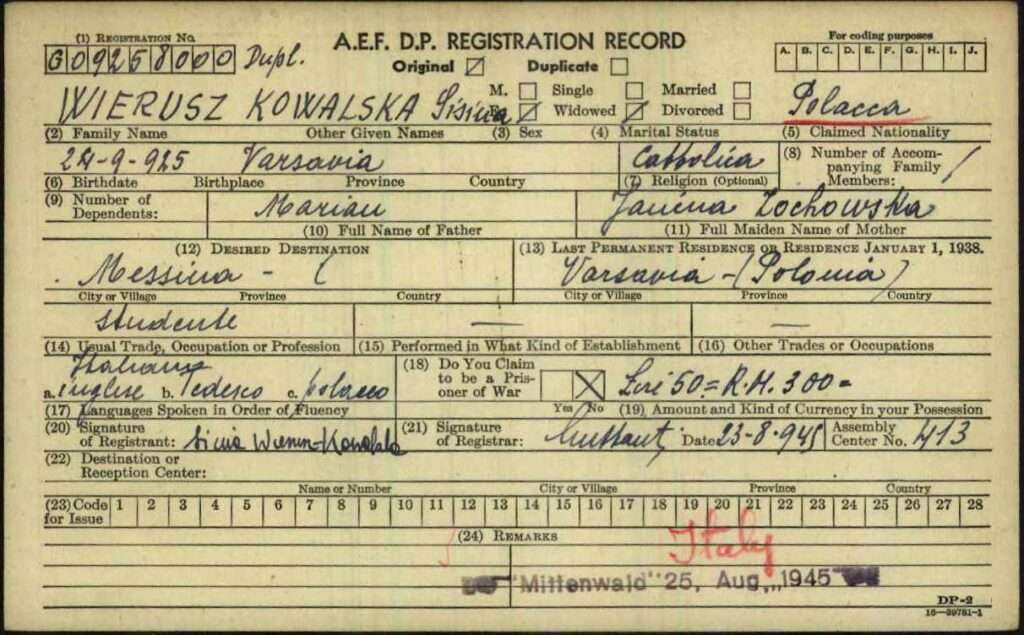 (1) REGISTRATION NO.
G09258000 Dupl.
A.E.F. D.P. REGISTRATION RECORD
Original Duplicate
For coding purposes
A. B. C. D. E. F. G. H. I. J.
WIERUSZ KOWALSKA Sisina
M. Single Married
F. Widowed Divorced
Polacca
(2) Family Name Other Given Names (3) Sex (4) Marital Status (5) Claimed Nationality
24-9-925 Varsavia Cattolica
(8) Number of Accompanying Family Members: /
(6) Birthdate Birthplace Province Country (7) Religion (Optional)
(9) Number of Dependents: Marian Janina Zochowska
(10) Full Name of Father (11) Full Maiden Name of Mother
(12) DESIRED DESTINATION (13) LAST PERMANENT RESIDENCE OR RESIDENCE JANUARY 1, 1938.
Messina - ( Varsavia - (Polonia)
City or Village Province Country City or Village Province Country
Studente — —
(14) Usual Trade, Occupation or Profession (15) Performed in What Kind of Establishment (16) Other Trades or Occupations
Italiano
a. inglese b. Tedesco c. polacco
(18) Do You Claim to be a Prisoner of War X Lire 50= R.M. 300=
(17) Languages Spoken in Order of Fluency Yes No (19) Amount and Kind of Currency in your Possession
(20) Signature of Registrant: Kowalska (21) Signature of Registrar: Date 23-8-945 Assembly Center No. 413
(22) Destination or Reception Center:
Name or Number City or Village Province Country
(23) Code for Issue 1 2 3 4 5 6 7 8 9 10 11 12 13 14 15 16 17 18 19 20 21 22 23 24 25 26 27 28
(24) REMARKS
Italy
"Mittenwald" 25, Aug, 1945
DP-2
16-39781-1